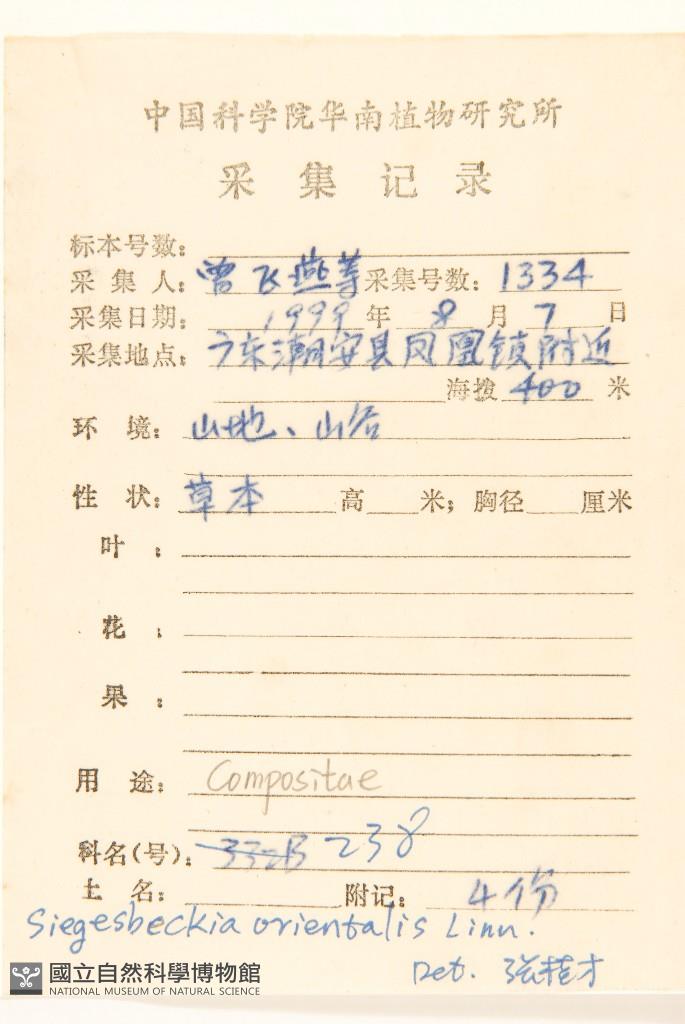 中国科学院华南植物研究所
采集记录
标本号数:
采集人: 曾飞燕等 采集号数: 1334
采集日期: 1999 年 8 月 7 日
采集地点: 广东潮安县凤凰镇附近
海拨 400 米
环境: 山地、山谷
性状: 草本 高 米; 胸径 厘米
叶:
花:
果:
用途: Compositae
科名(号): 332B 238
土名: 附记: 4份
Siegesbeckia orientalis Linn.
Det. 张桂才
國立自然科學博物館
NATIONAL MUSEUM OF NATURAL SCIENCE